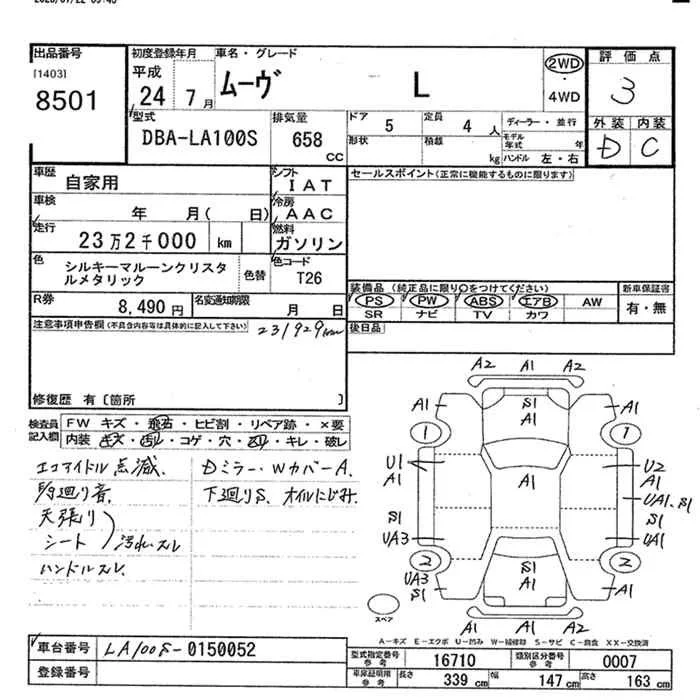 出品番号
[1403]
8501
初度登録年月
平成
24 7月
車名・グレード
ムーヴ L
2WD
・
4WD
評価点
3
外装 内装
D C
型式
DBA-LA100S
排気量
658
CC
ドア 5
定員 4 人
形状
積載 kg
ディーラー・並行
モデル年式 年
ハンドル 左・右
車歴
自家用
シフト
IAT
車検 年 月( 日)
冷房
AAC
走行
23万2千000 km
燃料
ガソリン
色
シルキーマルーンクリスタ
ルメタリック
色替
色コード
T26
R券 8,490円
名変通知期限 月 日
セールスポイント(正常に機能するものに限ります)
装備品(純正品に限り○をつけてください)
PS PW ABS エアB AW
SR ナビ TV カワ
新車保証書
有・無
後日品
注意事項申告欄(不具合内容等は具体的に記入して下さい)
231929km
修復歴 有〔箇所 〕
検査員
記入欄
FW キズ・飛石・ヒビ割・リペア跡・×要
内装 キズ・汚レ・コゲ・穴・凹リ・キレ・破レ
エコアイドル点滅、
Dミラー・WカバーA、
下廻りS、オイルにじみ、
天張り
シート
汚れ・スレ
ハンドルスレ、
A2 A1 A2
A1 S1 A1 A1
1 1
U1 A1
A1
U2 A1
UA1、S1
S1 S1
UA3 UA1
2 2
UA3 S1
S1 A1
S1
A1 A1 A1
スペア
A-キズ E-エクボ U-凹み W-補修跡 S-サビ C-腐食 XX-交換済
車台番号 LA100S-0150052
登録番号
型式指定番号
参考
16710
類別区分番号
参考
0007
車庫証明用
参考
長さ 339 cm 幅 147 cm 高さ 163 cm